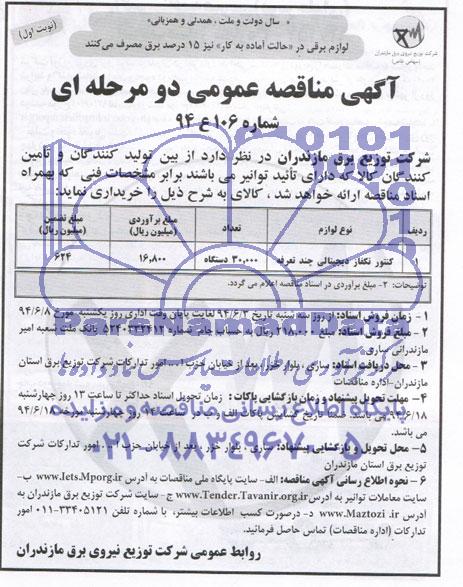 « سال دولت و ملت ، همدلی و همزبانی»
(نوبت اول)
لوازم برقی در «حالت آماده به کار» نیز ۱۵ درصد برق مصرف می‌کنند
شرکت توزیع نیروی برق مازندران
(سهامی خاص)
آگهی مناقصه عمومی دو مرحله ای
شماره ۱۰۶ ع ۹۴
شرکت توزیع برق مازندران در نظر دارد از بین تولید کنندگان و تأمین
کنندگان کالا که دارای تأئید توانیر می باشند برابر مشخصات فنی که بهمراه
اسناد مناقصه ارائه خواهد شد ، کالای به شرح ذیل را خریداری نماید:
ردیف نوع لوازم تعداد مبلغ برآوردی (میلیون ریال) مبلغ تضمین (میلیون ریال)
۱ کنتور تکفاز دیجیتالی چند تعرفه ۳۰,۰۰۰ دستگاه ۱۶,۸۰۰ ۶۲۴
توضیحات: ۲- مبلغ برآوردی در اسناد مناقصه اعلام می گردد.
۱- زمان فروش اسناد: از روز سه شنبه بتاریخ ۹۴/۶/۳ لغایت پایان وقت اداری روز یکشنبه مورخ ۹۴/۶/۸
۲- مبلغ فروش اسناد: ۲۱۸,۰۰۰ ریال به حساب جام شماره بانک ملت شعبه امیر
مازندرانی ساری
۳- محل دریافت اسناد: ساری ، بلوار خزر، بعد از خیابان حزب ا... امور تدارکات شرکت توزیع برق استان
مازندران-اداره مناقصات
۴- مهلت تحویل پیشنهاد و زمان بازگشایی پاکات : زمان تحویل اسناد حداکثر تا ساعت ۱۳ روز چهارشنبه
۹۴/۶/۱۸ می باشد. ضمناً تاریخ گشایش پاکات الف و ب در ساعت چهارشنبه مورخه ۹۴/۶/۱۸
می باشد.
۵- محل تحویل و بازگشایی پیشنهاد: ساری ، بلوار خزر ، بعد از خیابان حزب ا... امور تدارکات شرکت
توزیع برق استان مازندران
۶- نحوه اطلاع رسانی آگهی مناقصه: الف- سایت پایگاه ملی مناقصات به آدرس www.Iets.Mporg.ir ب-
سایت معاملات توانیر به آدرس www.Tender.Tavanir.org.ir ج- سایت شرکت توزیع برق مازندران به آدرس
www.Maztozi.ir د- درصورت کسب اطلاعات بیشتر، با شماره تلفن ۳۳۴۰۵۱۲۱-۰۱۱ امور
تدارکات (اداره مناقصات) تماس حاصل فرمائید.
روابط عمومی شرکت توزیع نیروی برق مازندران
پایگاه اطلاع رسانی مناقصه و مزایده
۰۲۱-۸۸۳۴۹۶۷۰-۵